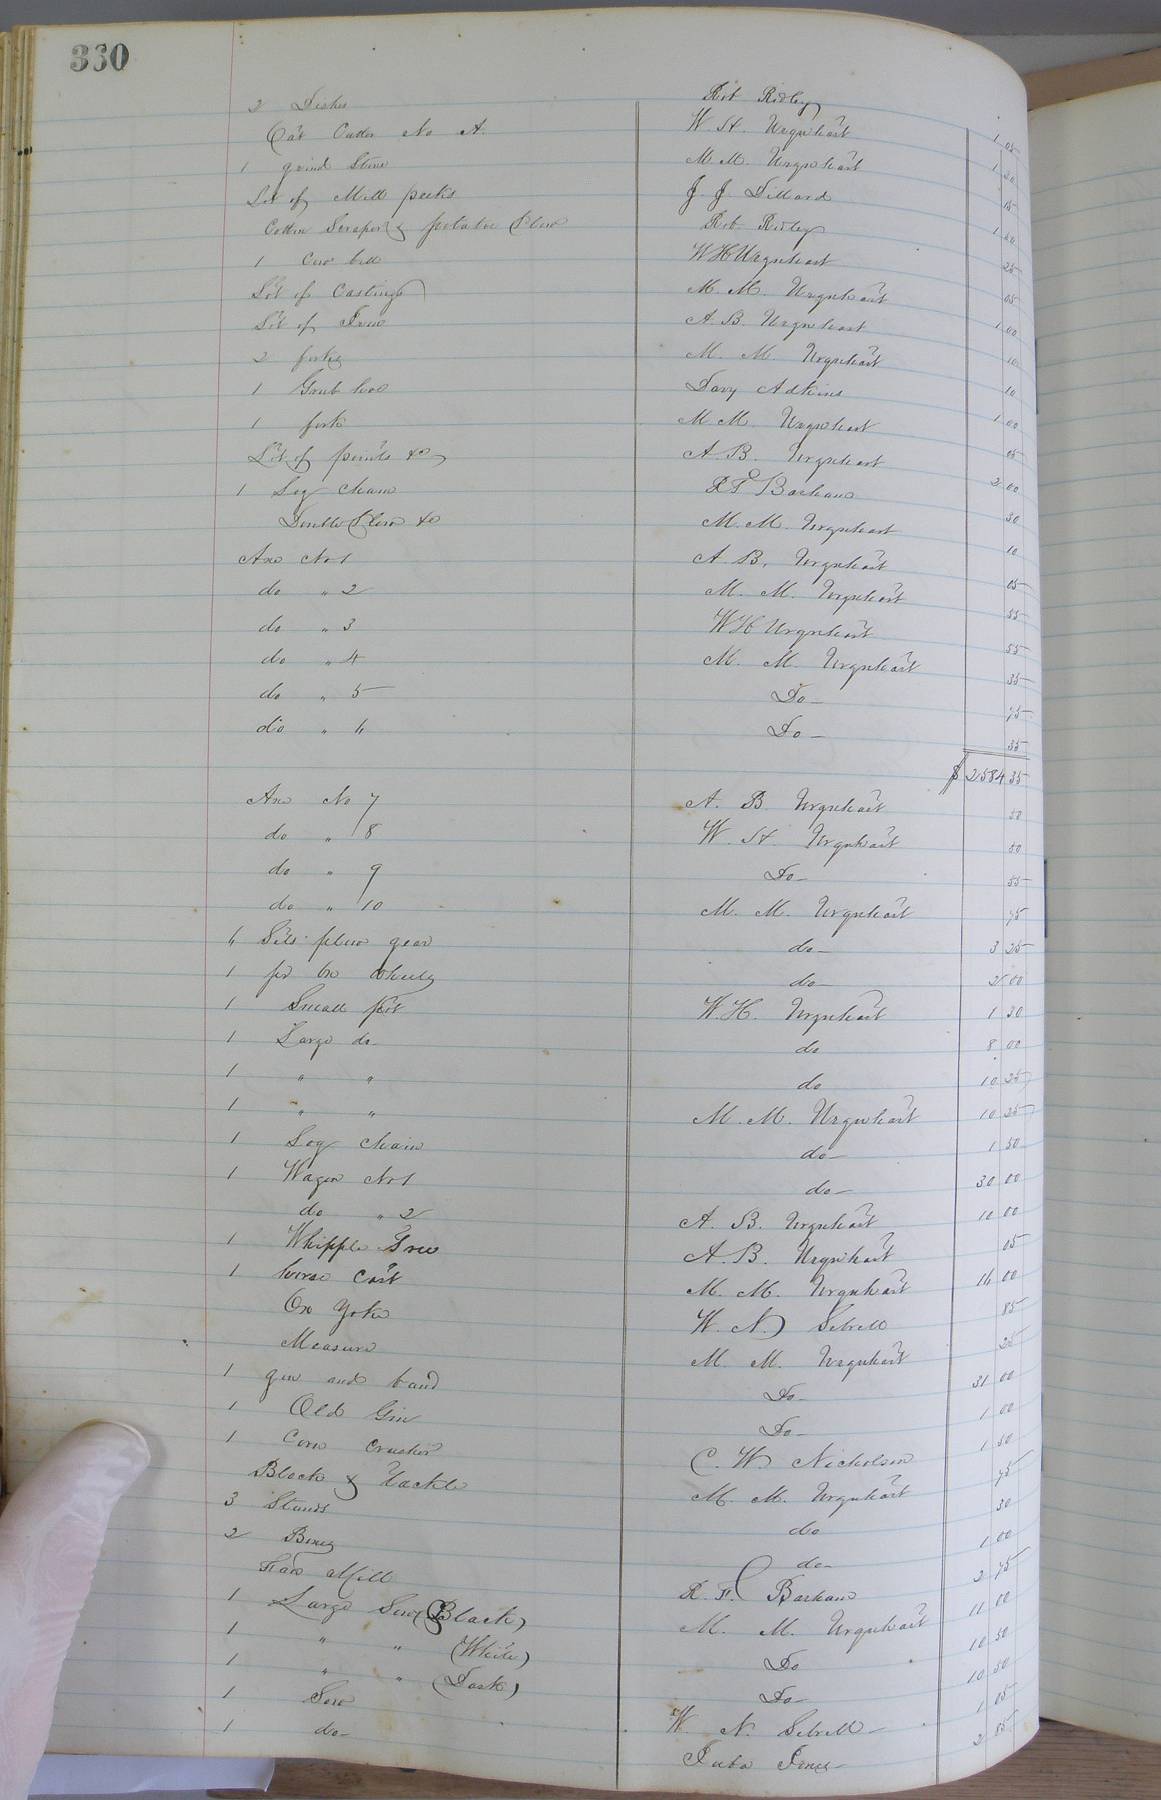 330
2 Dishes Rob Ridley
Oat Cutter No A. W. H. Urquhart 1 05
1 grind Stone M. M. Urquhart 1 30
Lot of Mill pecks J. J. Dillard 15
Cotton Scraper & potatoe Plow Rob. Ridley 1 50
1 Cow bell W H Urquhart 25
Lot of Castings M. M. Urquhart 05
Lot of Iron A. B. Urquhart 1 00
2 forks M. M. Urquhart 10
1 Grub hoe Davy Adkins 10
1 fork M M. Urquhart 1 00
Lot of points &c A. B. Urquhart 05
1 Log Chain R F Barham 2 00
Double Plow &c M. M. Urquhart 30
Axe No 1 A. B. Urquhart 10
do " 2 M. M. Urquhart 05
do " 3 W H Urquhart 55
do " 4 M. M. Urquhart 55
do " 5 Do 35
do " 6 Do 75
35
$ 2584 35
Axe No 7 A. B Urquhart 50
do " 8 W. H. Urquhart 50
do " 9 Do 55
do " 10 M. M. Urquhart 75
6 Sets plow gear do 3 25
1 pr Ox Wheels do 2 00
1 Small Pot W. H. Urquhart 1 30
1 Large do do 8 00
1 " " do 10 25
1 " " M. M. Urquhart 10 25
1 Log Chain do 1 50
1 Wagon No 1 do 30 00
do " 2 A. B. Urquhart 10 00
1 Whipple Tree A. B. Urquhart 05
1 horse Cart M. M. Urquhart 16 00
Ox Yoke W. N. Sebrell 85
Measure M. M. Urquhart 25
1 gin and band Do 31 00
1 Old Gin Do 1 00
1 Corn Crusher C. W. Nicholson 1 50
Block & Tackle M. M. Urquhart 75
3 Stands do 30
2 Boxes do 1 00
Fan Mill R. F. Barham 2 75
1 Large Sow (Black) M. M. Urquhart 11 00
1 " " (White) Do 10 50
1 " " (Dark) Do 10 50
1 Sow W. N. Sebrell 1 05
1 do Juba Jones 2 85